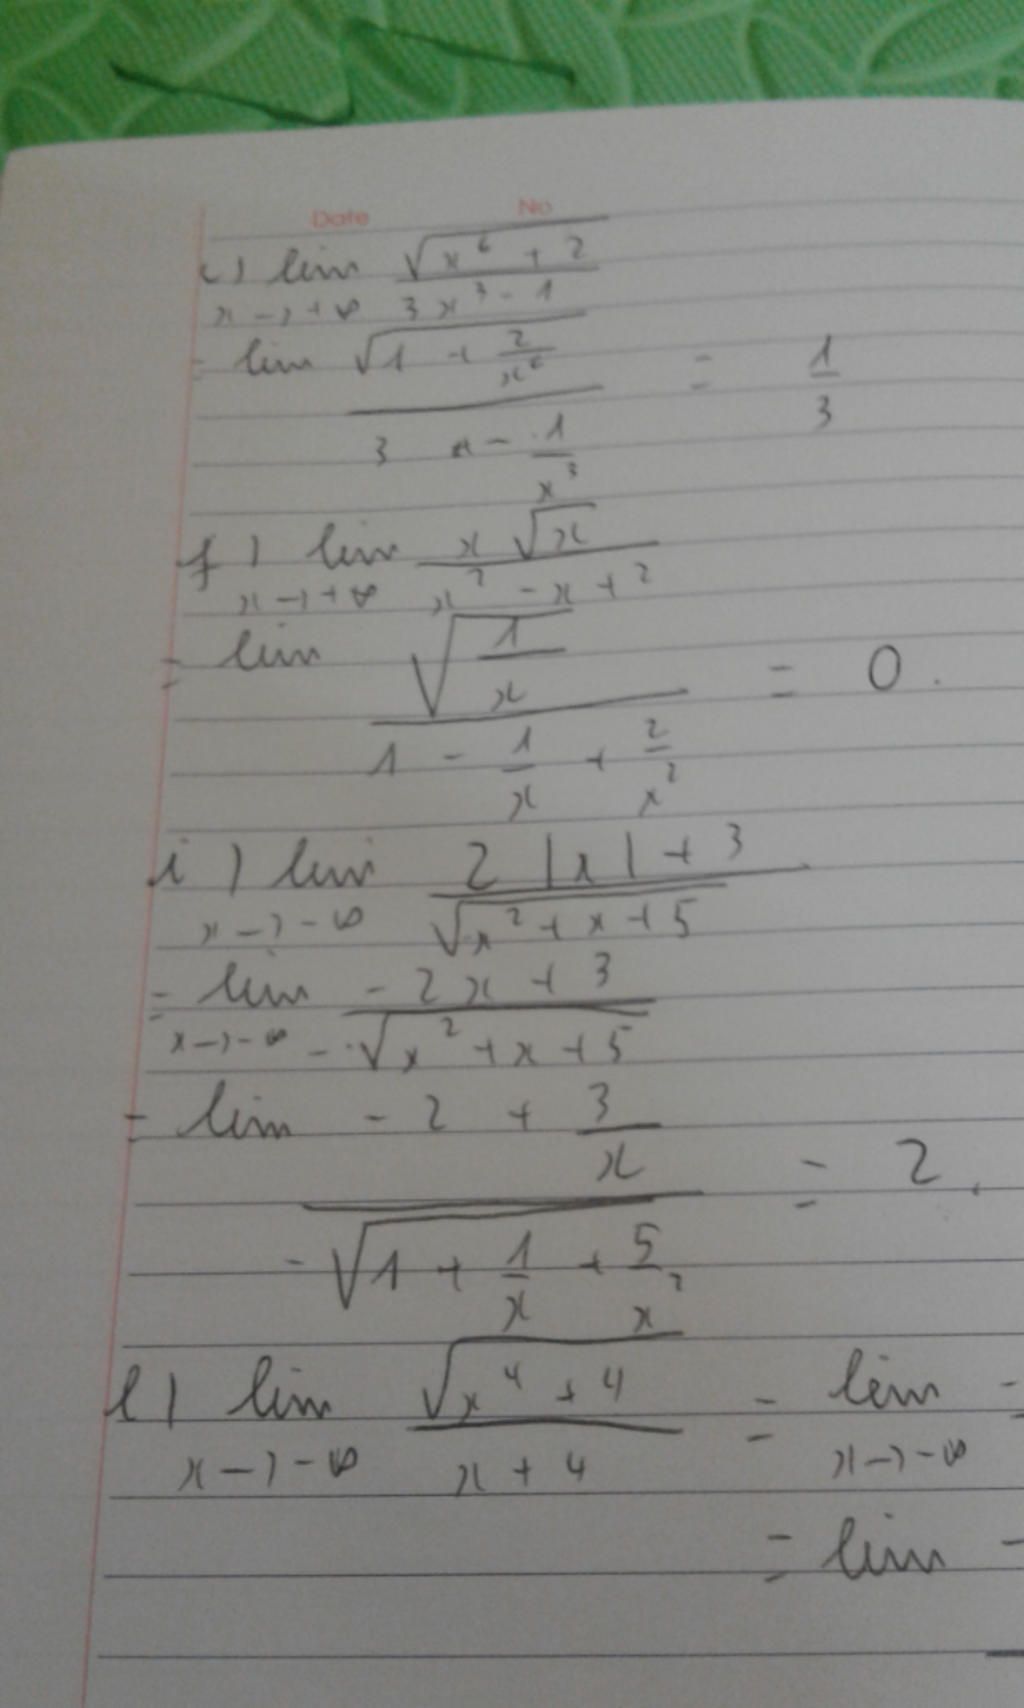 Date No
c) lim √(x⁶ + 2)
x→+∞ 3x³ - 1
= lim √(1 + 2/x⁶) = 1/3
3 - 1/x³
f) lim x √x
x→+∞ x² - x + 2
= lim √(1/x) = 0.
1 - 1/x + 2/x²
i) lim 2|x| + 3
x→-∞ √(x² + x + 5)
= lim -2x + 3
x→-∞ -√(x² + x + 5)
= lim -2 + 3/x = 2.
-√(1 + 1/x + 5/x²)
l) lim √(x⁴ + 4) = lim -
x→-∞ x + 4 x→-∞
= lim -